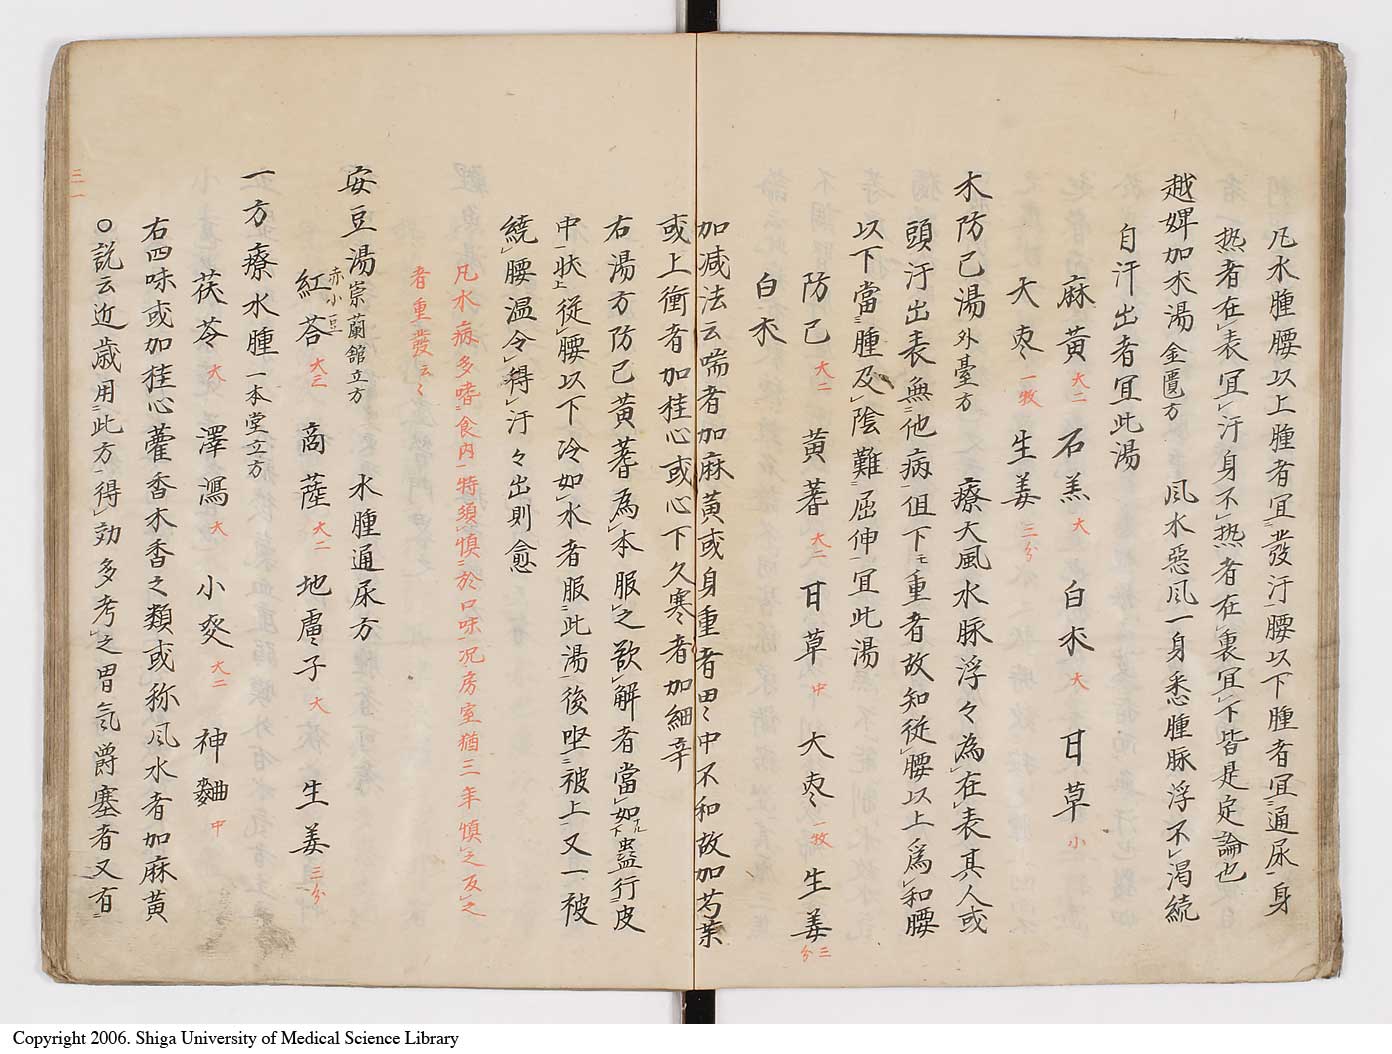 凡水腫腰以上腫者宜發汗腰以下腫者宜通尿身
热者在表宜汗身不热者在裏宜下皆是定論也
越婢加朮湯 金匱方 風水惡風一身悉腫脉浮不渴続
自汗出者宜此湯
麻黄 大二 石羔 大 白朮 大 甘草 小
大枣 一牧 生姜 三分
木防已湯 外臺方 療大風水脉浮々為在表其人或
頭汗出表無他病但下重者故知従腰以上爲和腰
以下當腫及陰難屈伸宜此湯
防已 大二 黄蓍 大二 甘草 中 大枣 一牧 生姜 三分
白朮
加减法云喘者加麻黄或身重者田〻中不和故加芍薬
或上衝者加桂心或心下久寒者加細辛
右湯方防已黄蓍為本服之欲解者當如蟲行皮
中状従腰以下冷如水者服此湯後坐被上又一被
繞腰温令得汗々出則愈
凡水病多嗜食内特須慎於口味况房室猶三年慎之反之
者重發云〻
安豆湯 崇蘭館立方 水腫通尿方
紅荅 赤小豆 大三 商蓙 大二 地膚子 大 生姜 三分
一方療水腫 一本堂立方
茯苓 大 澤瀉 大 小麥 大二 神麯 中
右四味或加桂心藿香木香之類或称風水者加麻黄
○説云近歳用此方得効多考之胃氣爵塞者又有
三一
Copyright 2006. Shiga University of Medical Science Library